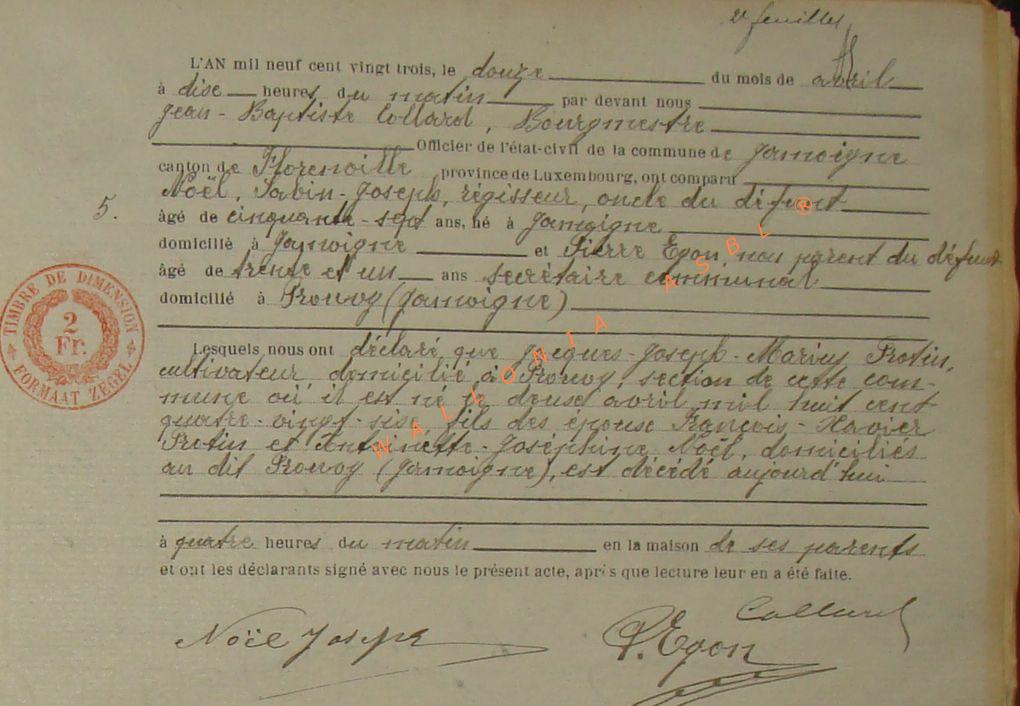 2e feuillet
L'AN mil neuf cent vingt trois, le douze du mois de avril
à dise heures du matin par devant nous
Jean-Baptiste Collard, Bourgmestre
Officier de l'état-civil de la commune de Jamoigne
canton de Florenville province de Luxembourg, ont comparu
Noël, Sabin-Joseph, régisseur, oncle du défunt
5.
âgé de cinquante-sept ans, né à Jamoigne
domicilié à Jamoigne et Pierre Egon, non parent du défunt
âgé de trente et un ans secrétaire communal
domicilié à Prouvoy (Jamoigne)
TIMBRE DE DIMENSION
2
Fr.
FORMAAT ZEGEL
Lesquels nous ont déclaré que Jacques-Joseph-Marius Protin,
cultivateur, domicilié à Prouvoy, section de cette com-
mune où il est né le deuse avril mil huit cent
quatre-vingt-sise, fils des épouse François-Xavier
Protin et Antoinette-Joséphine Noël, domiciliés
au dit Prouvoy (Jamoigne), est décédé aujourd'hui
à quatre heures du matin en la maison de ses parents
et ont les déclarants signé avec nous le présent acte, après que lecture leur en a été faite.
Collard
Noël Joseph P. Egon
WALLONIA ASBL ®